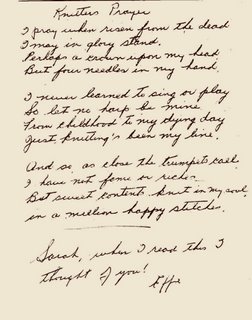 Knitters Prayer
I pray when risen from the dead
I may in glory stand.
Perhaps a crown upon my head
But four needles in my hand.
I never learned to sing or play
So let no harp be mine
From childhood to my dying day
Just knitting's been my line.
And so as close the trumpets call
I have not fame or riches.
But sweet contents knit in my soul
in a million happy stitches.
Sarah, when I read this I
thought of you!
Effe